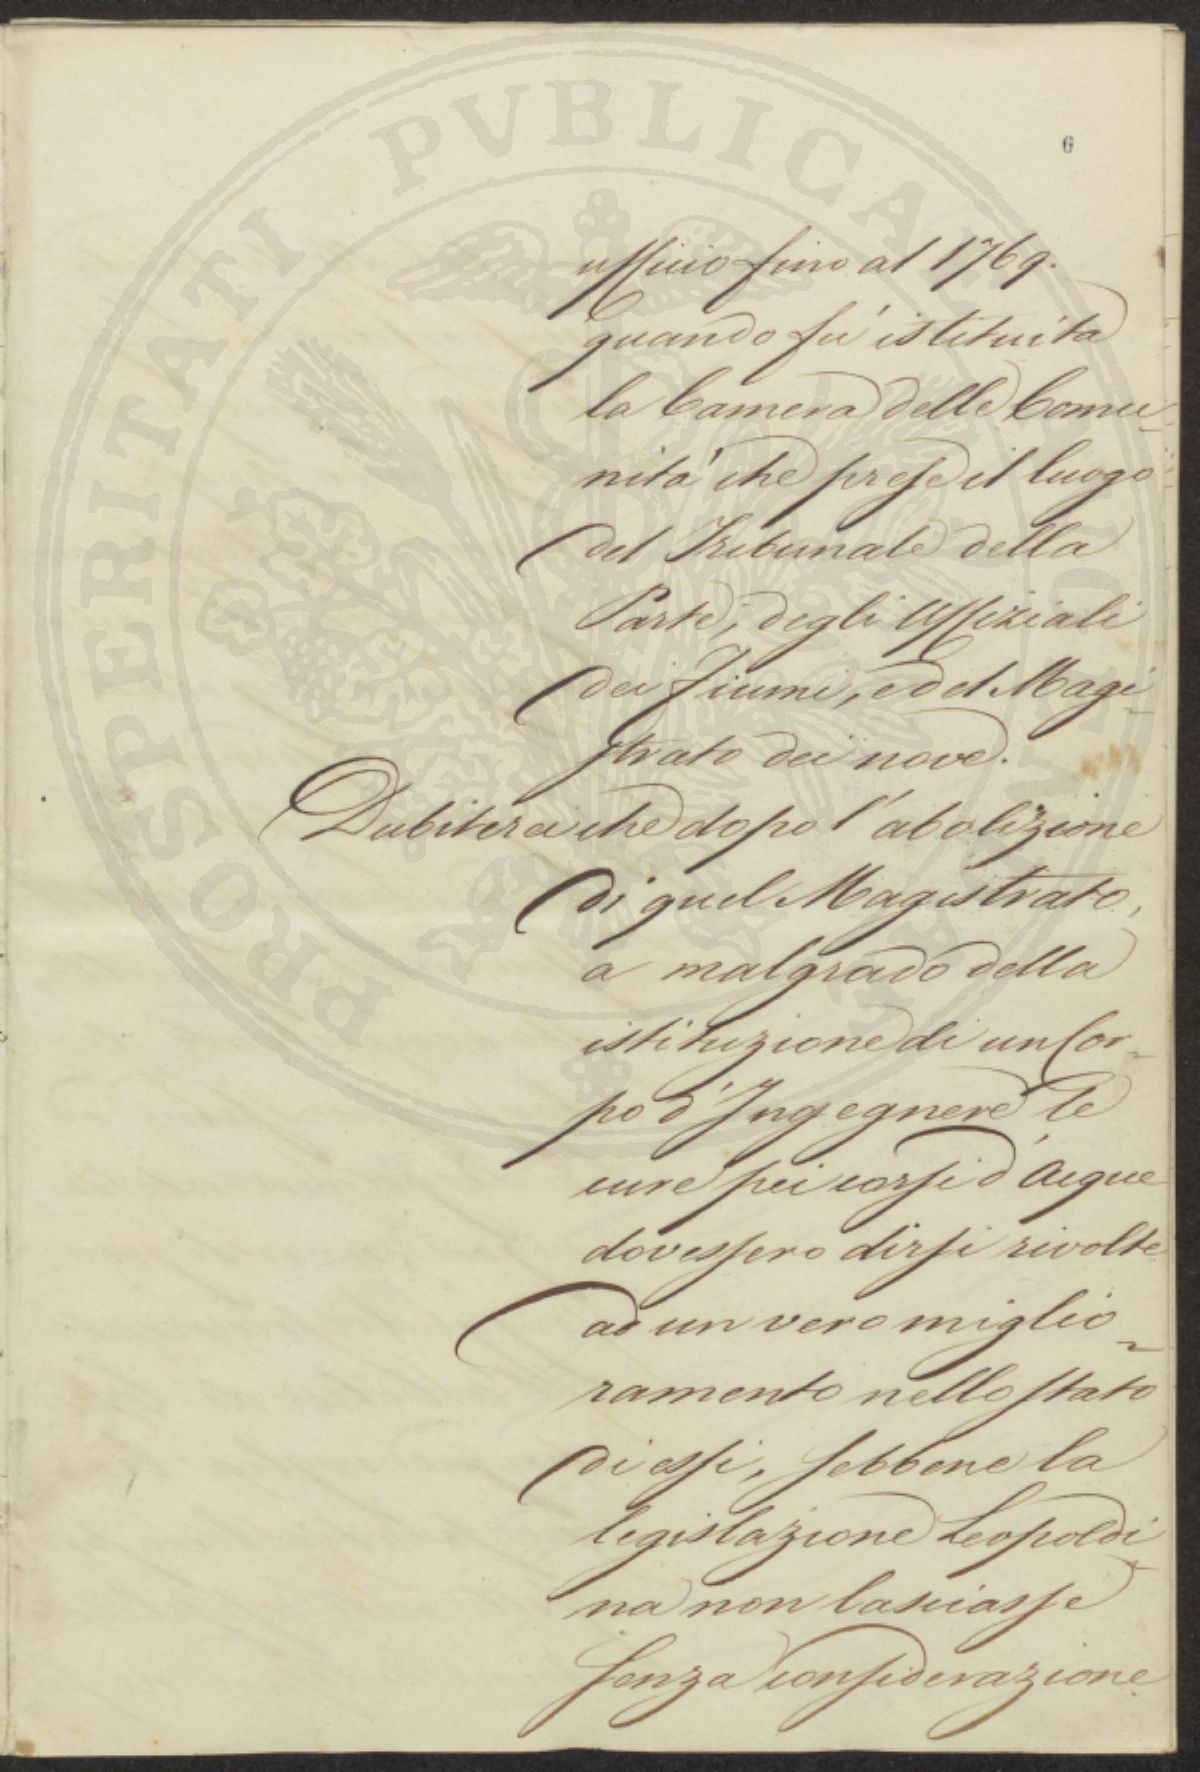 6
ufficio fino al 1769.
quando fu' istituita
la Camera delle Comu-
nita' che prese il luogo
del Tribunale della
Parte, degli Uffiziali
dei Fiumi, e del Magi-
strato dei nove.
Dubiterei che dopo l'abolizione
di quel Magistrato,
a malgrado della
istituzione di un Cor-
po d'Ingegnere le
cure pei corsi d'Acque
dovessero dirsi rivolte
ad un vero miglio-
ramento nello stato
di essi, sebbene la
legislazione Leopoldi-
na non lasciasse
senza considerazione
PROSPERITATI PVBLICAE